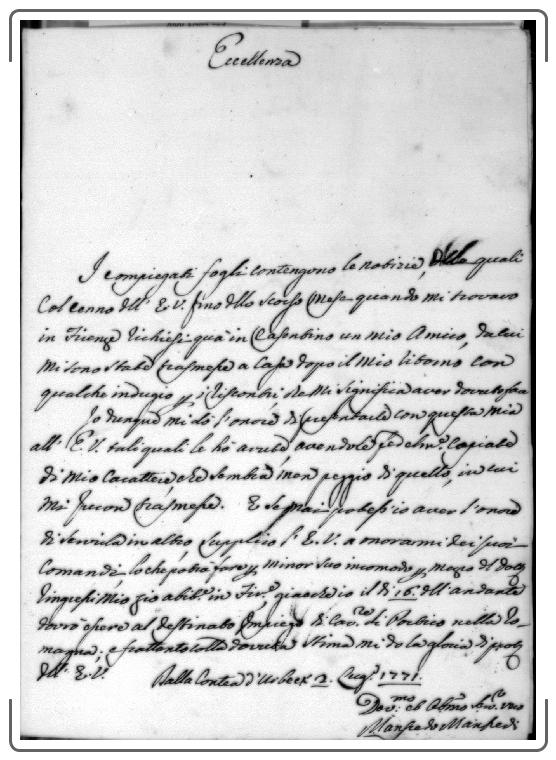 Eccellenza
I compiegati fogli contengono le notizie, delle quali
col cenno dell' E.V. fino dello scorso Mese quando mi trovavo
in Firenze richiesi quà in Casentino un mio Amico, da cui
mi sono state trasmesse a Casa dopo il mio ritorno con
qualche indugio p. i riscontri che mi significa aver dovuto fare
Io dunque mi dò l'onore di presentarle con questa mia
all' E.V. tali quali le hò avute avendole copiate
di mio Carattere, che sembra men peggio di quello, in cui
mi furon trasmesse. E se mai potess'io aver l'onore
di servirla in altro supplico l' E.V. a onorarmi dei suoi
Comandi, lo che potrà fare p. minor suo incomodo p. mezzo del
mio zio abit. in Fir. giacchè io il dì 16. dell' andante
dovrò essere al destinato Impiego di di Portico nella Ro-
magna; e frattanto colla dovuta stima mi do la gloria di
dell' E.V.
Dalla Contea d'Urbech 2. Lug. 1771.
Dev.mo ed Obbmo
Manfredo Manfredi